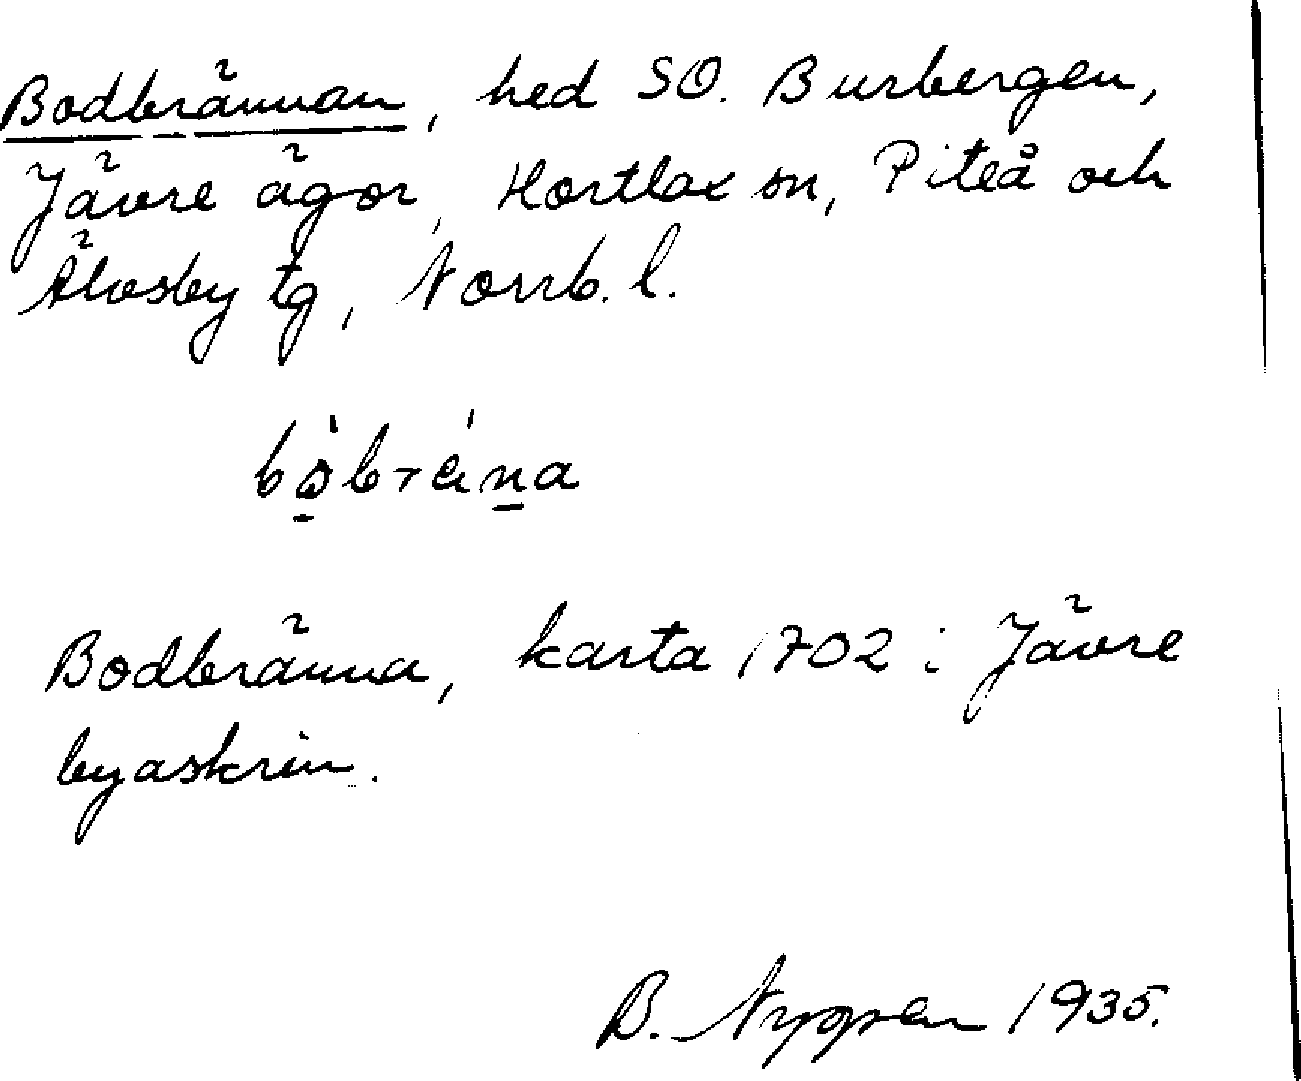 Bodbrännan, hed SO. Burbergen,
Jävre ägor, Hortlax sn, Piteå och
Älvsby tg, Norrb. l.
Bodbränna, karta 1702 i Jävre
byaskrin.
B. Nygren 1935.